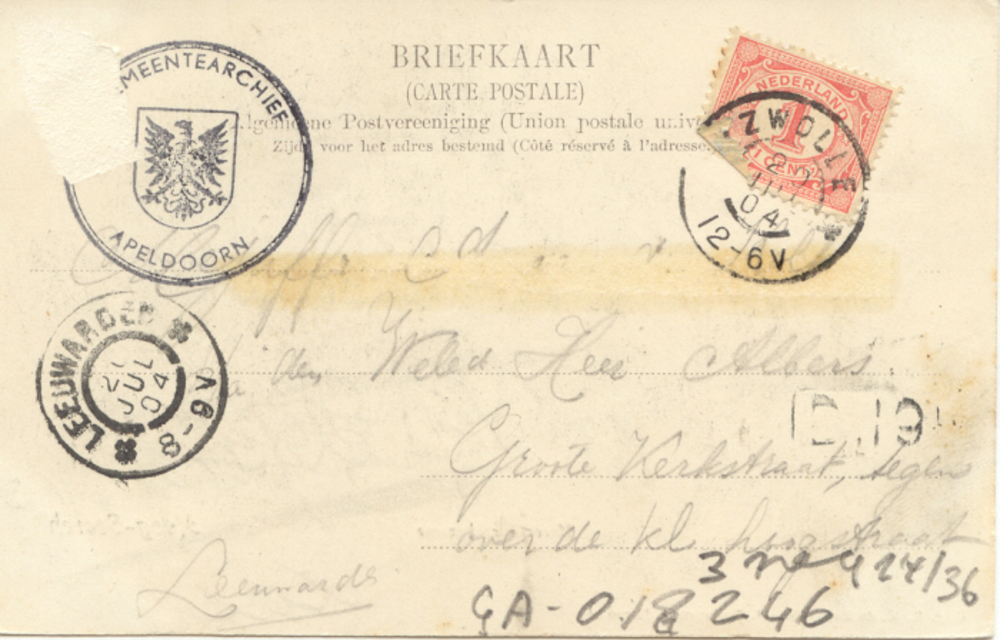 BRIEFKAART
(CARTE POSTALE)
Algemeene Postvereeniging (Union postale univ
Zijde voor het adres bestemd (Côté réservé à l'adresse.
MEENTEARCHIEF
APELDOORN
NEDERLAND
1
CENT
ZWOLLE
JUL
04
12-6V
LEEUWARDEN
21
JUL
04
8-9V
den Weled Heer Albers.
Groote Kerkstraat, tegen
over de kl. hoogstraat
Leeuwarde
GA-018246